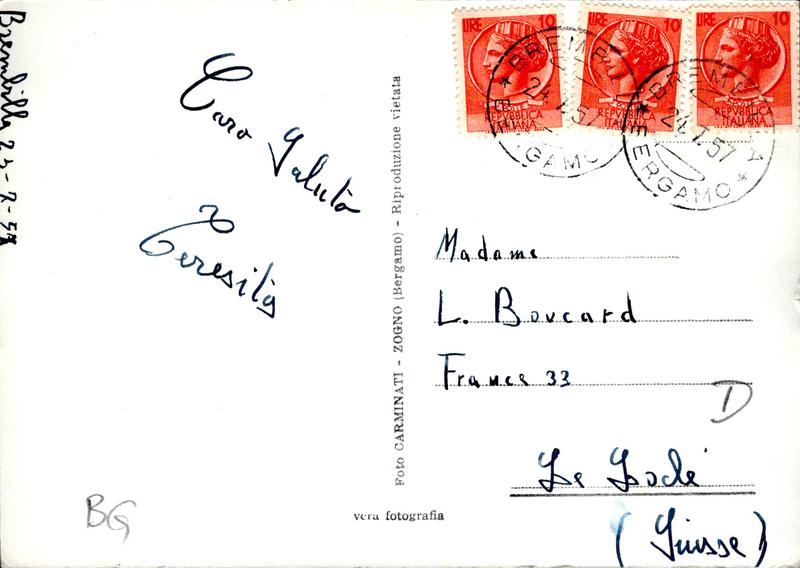 Brembilla 23-7-57
Caro Saluto
Teresita
BG
Foto CARMINATI - ZOGNO (Bergamo) - Riproduzione vietata
vera fotografia
LIRE 10
POSTE
REPVBBLICA
ITALIANA
LIRE 10
POSTE
REPVBBLICA
ITALIANA
LIRE 10
POSTE
REPVBBLICA
ITALIANA
BREMBILLA
24.7.57
BERGAMO
BREMBILLA
24.7.57
BERGAMO
Madame
L. Boucard
France 33
D
Le Locle
(Suisse)